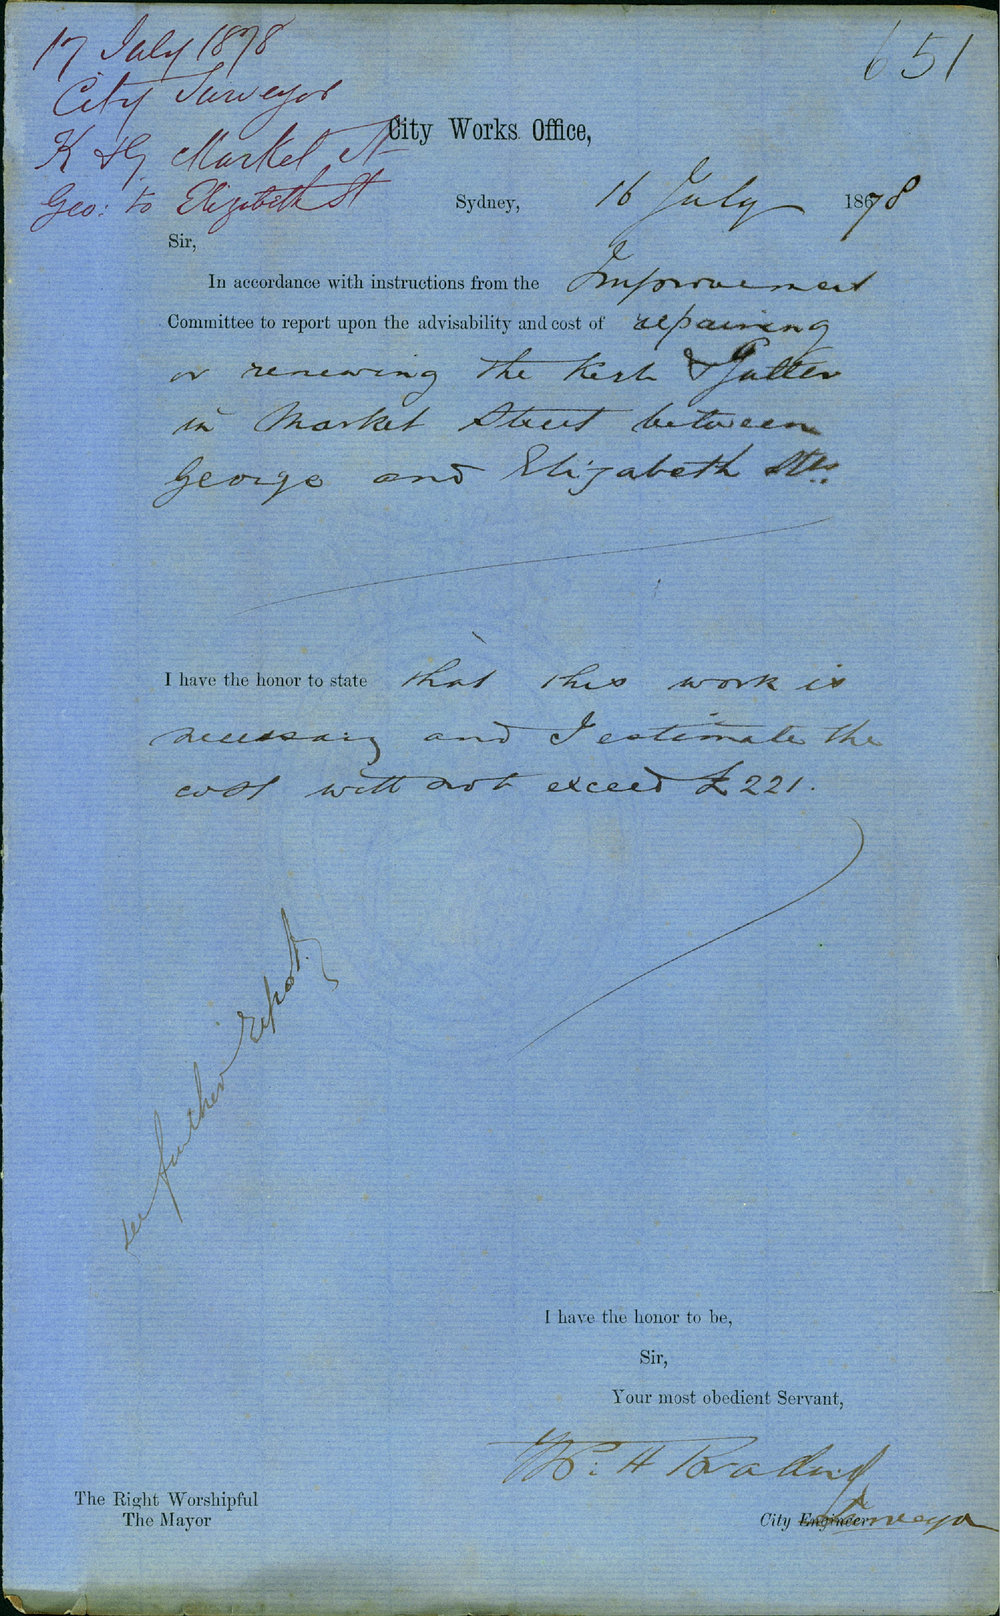 17 July 1878
651
City Surveyor
K & G Market St
Geo: to Elizabeth St
City Works Office,
Sydney, 16 July 1878
Sir,
In accordance with instructions from the Improvement
Committee to report upon the advisability and cost of repairing
or renewing the Kerb & Gutter
in Market Street between
George and Elizabeth Sts.
I have the honor to state that this work is
necessary and I estimate the
cost will not exceed £221.
see further report
I have the honor to be,
Sir,
Your most obedient Servant,
The Right Worshipful
The Mayor
City Engineer Surveyor